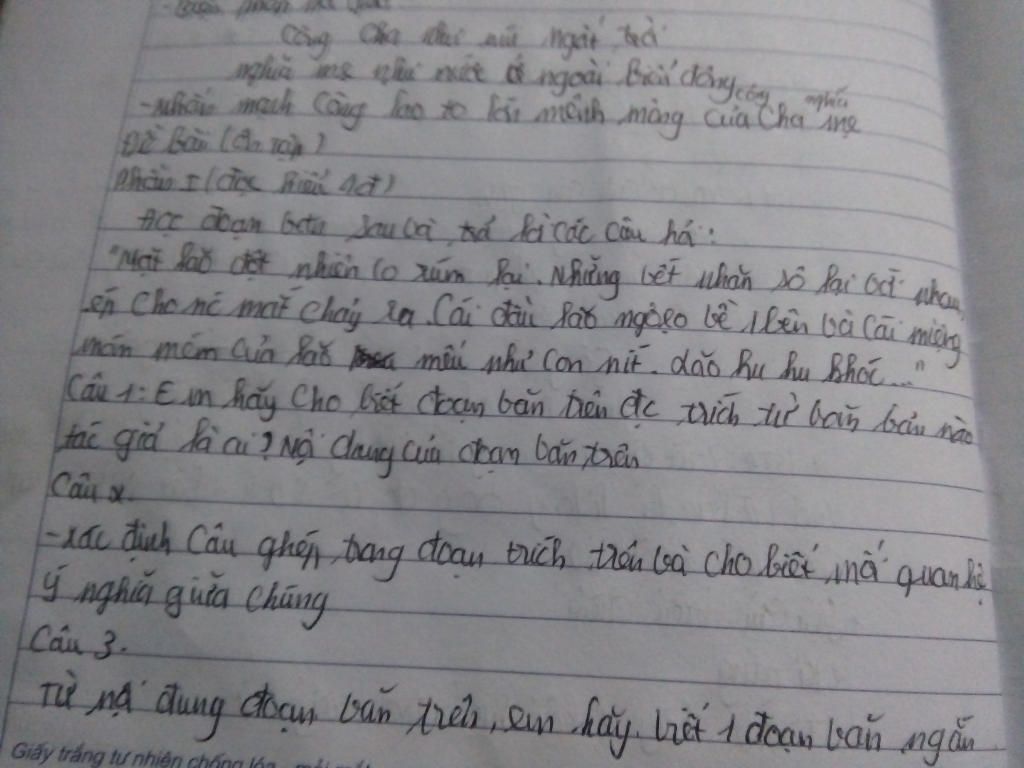 Công cha như núi ngất trời
nghĩa mẹ như nước ở ngoài biển đông
công nghĩa
-nhấn mạnh công lao to lớn mênh mông của cha mẹ
Đề bài (ôn tập)
Phần I (đọc hiểu 4đ)
Đọc đoạn văn sau và trả lời các câu hỏi:
"Mặt lão đột nhiên co rúm lại. Những vết nhăn xô lại với nhau,
ép cho nc mắt chảy ra. Cái đầu lão ngoẹo về 1 bên và cái miệng
móm mém của lão mếu như con nít. Lão hu hu khóc..."
Câu 1: Em hãy cho biết đoạn văn trên đc trích từ văn bản nào
tác giả là ai? Nội dung của đoạn văn trên
Câu 2.
-xác định câu ghép trong đoạn trích trên và cho biết mối quan hệ
ý nghĩa giữa chúng
Câu 3.
Từ nội dung đoạn văn trên, em hãy viết 1 đoạn văn ngắn
Giấy trắng tự nhiên chống lóa